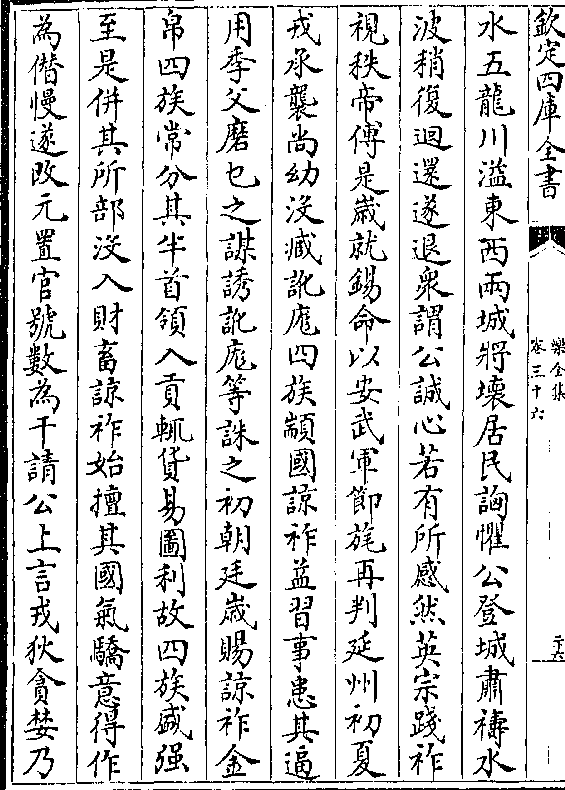 欽定四庫全書
樂全集
卷三十六
二十六
水五龍川溢東西兩城將壞居民詾懼公登城肅禱水
波稍復迴還遂退衆謂公誠心若有所感然英宗踐祚
視秩帝傅是歳就錫命以安武軍節旄再判延州初夏
戎承襲尚幼没臧訛厖四族顓國諒祚益習事患其逼
用季父磨乜之謀誘訛厖等誅之初朝廷歳賜諒祚金
帛四族常分其半首領入貢輒貨易圖利故四族盛强
至是併其所部没入財畜諒祚始擅其國氣驕意得作
為僭慢遂改元置官號數為干請公上言戎狄貪婪乃